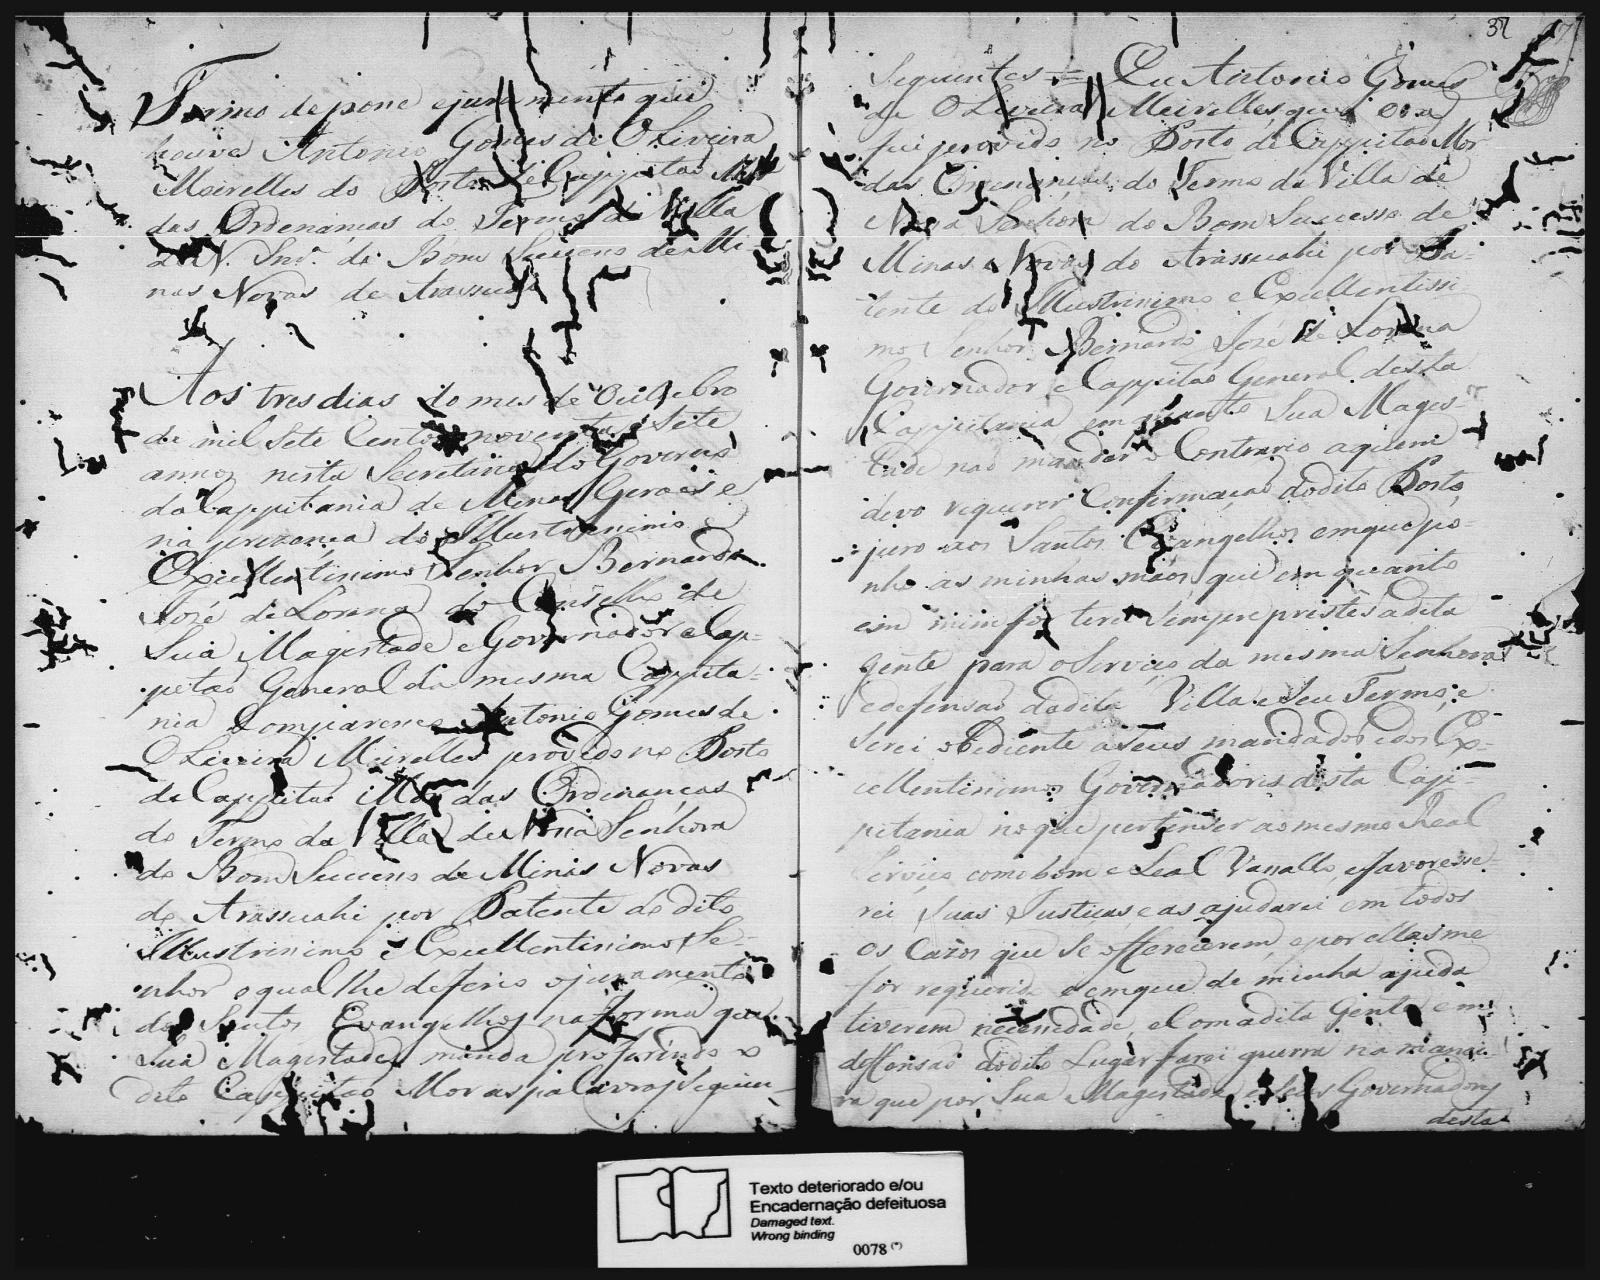 Termo de pose e juramento que
houve Antonio Gomes de Oliveira
Meirelles do Posto de Cappitão Mor
das Ordenanças do Termo da Villa
de N. Snr.ª do Bom Sucesso de Mi
nas Novas de Arassuahi
Aos tres dias do mes de Outubro
de mil Sete Centos noventa e Sete
annos nesta Secretaria do Governo
da Cappitania de Minas Gerais e
na prezença do Illustrissimo e
Excellentissimo Senhor Bernardo
José de Lorena do Conselho de
Sua Magestade e Governador e Cap=
pitão General da mesma Cappita=
nia Compareceo Antonio Gomes de
Oliveira Meirelles provido no Posto
de Cappitão Mor das Ordenanças
do Termo da Villa de Nossa Senhora
do Bom Sucesso de Minas Novas
de Arassuahi por Patente do dito
Illustrissimo e Excellentissimo Se=
nhor o qual lhe deferio o juramento
dos Santos Evangelhos na forma que
Sua Magestade manda proferindo o
dito Cappitão Mor as palavras Seguin=
37
Seguintes = Eu Antonio Gomes
de Oliveira Meirelles que ora
fui provido no Posto de Cappitão Mor
das Ordenanças do Termo da Villa de
Nossa Senhora do Bom Sucesso de
Minas Novas do Arassuahi por Pa=
tente do Illustrissimo e Excellentissi
mo Senhor Bernardo José de Lorena
Governador e Cappitão General desta
Cappitania em quanto Sua Mages=
tade não mandar o Contrario a quem
devo requerer Confirmação do dito Posto
juro aos Santos Evangelhos em que po=
nho as minhas mãos que em quanto
em mim for terei Sempre prestes a dita
gente para o Serviço da mesma Senhora
e defensão da dita Villa e Seu Termo, e
Serei obediente a Seus mandados e dos Ex=
cellentissimos Governadores desta Cap=
pitania no que pertencer ao mesmo Real
Serviço como bom e Leal Vassallo, e favorece=
rei Suas Justiças e as ajudarei em todos
os Cazos que Se offerecerem, e por ellas me
for requerido e em que de minha ajuda
tiverem necessidade, e Com a dita Gente em
deffensão do dito Lugar farei guerra na manei
ra que por Sua Magestade e Seus Governadores
desta
Texto deteriorado e/ou
Encadernação defeituosa
Damaged text.
Wrong binding
0078 (*)